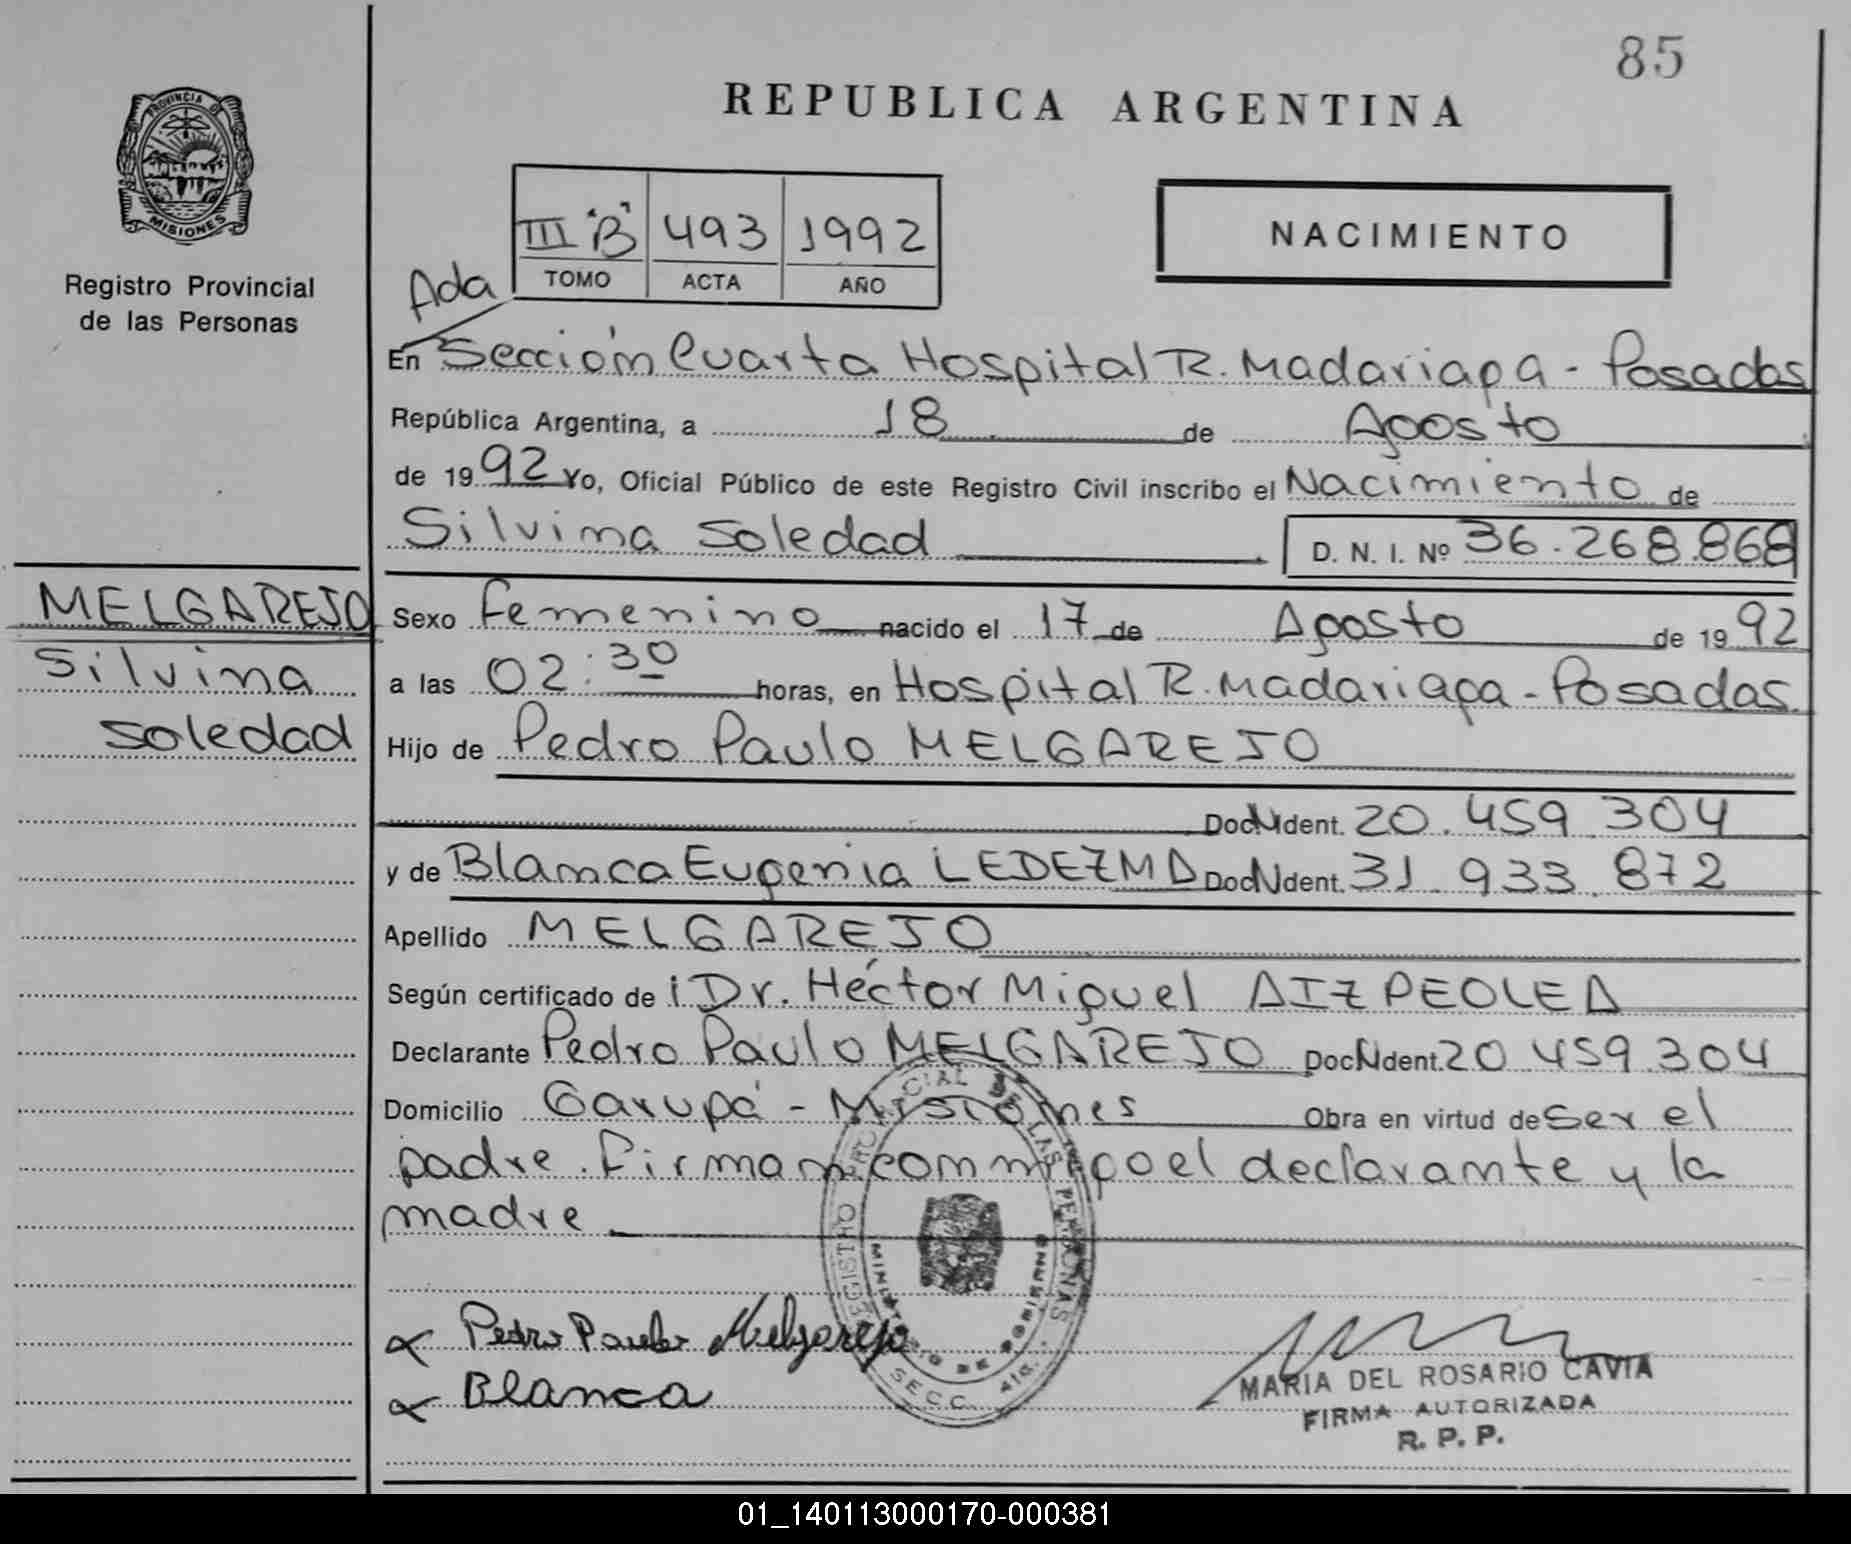 85
REPUBLICA ARGENTINA
PROVINCIA DE
MISIONES
Registro Provincial
de las Personas
III "B" 493 1992
TOMO ACTA AÑO
NACIMIENTO
Ada
En Sección Cuarta Hospital R. Madariaga - Posadas
República Argentina, a 18 de Agosto
de 1992 Yo, Oficial Público de este Registro Civil inscribo el Nacimiento de
Silvina Soledad D. N. I. Nº 36.268.868
MELGAREJO
Silvina
Soledad
Sexo femenino nacido el 17 de Agosto de 1992
a las 02:30 horas, en Hospital R. Madariaga - Posadas
Hijo de Pedro Paulo MELGAREJO
Doc. Ident. 20.459.304
y de Blanca Eugenia LEDEZMA Doc. Ident. 31.933.872
Apellido MELGAREJO
Según certificado de Dr. Héctor Miguel AIZPEOLEA
Declarante Pedro Paulo MELGAREJO Doc. Ident. 20.459.304
Domicilio Garupá - Misiones Obra en virtud de ser el
padre. Firman conmigo el declarante y la
madre
REGISTRO PROVINCIAL DE LAS PERSONAS
MINISTERIO DE GOBIERNO
SECC. 4ta.
Pedro Paulo Melgarejo
Blanca
MARIA DEL ROSARIO CAVIA
FIRMA AUTORIZADA
R. P. P.
01_140113000170-000381